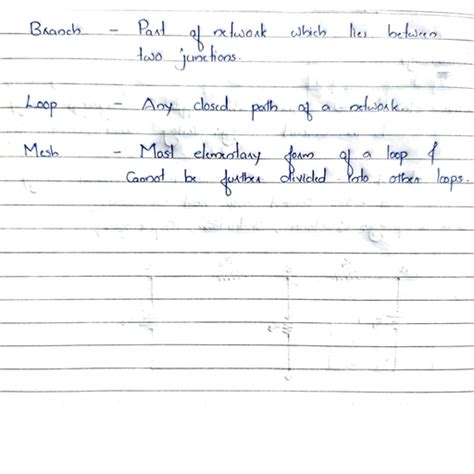 Branch - Part of network which lies between
two junctions.
Loop - Any closed path of a network.
Mesh - Most elementary form of a loop &
Cannot be further divided into other loops.